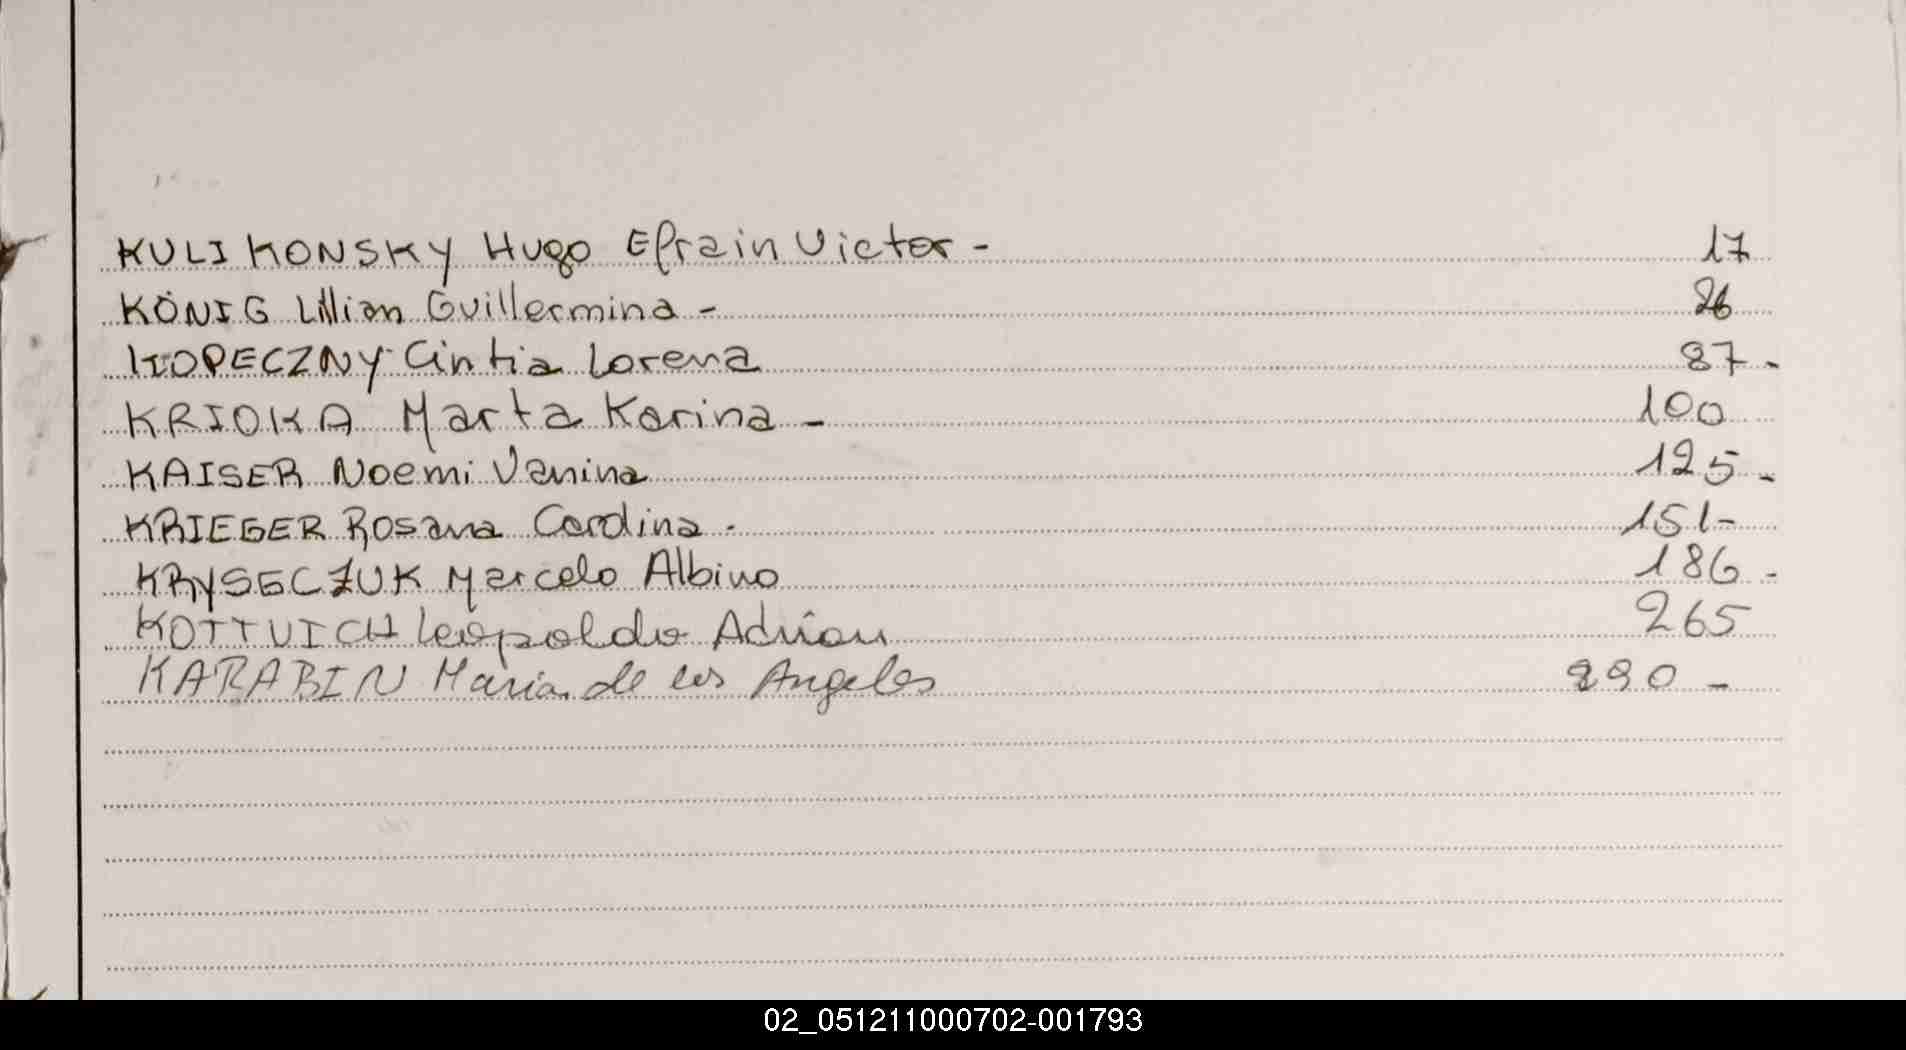 KULIKONSKY Hugo Efrain Victor - 17
KÖNIG Lillian Guillermina - 26
KOPECZNY Cintia Lorena 87-
KRIOKA Marta Karina - 100
KAISER Noemi Vanina 125-
KRIEGER Rosana Carolina - 151-
KRYSECZUK Marcelo Albino 186-
KOTTVICH Leopoldo Adrian 265
KARABIN Maria de los Angeles 290-
02_051211000702-001793